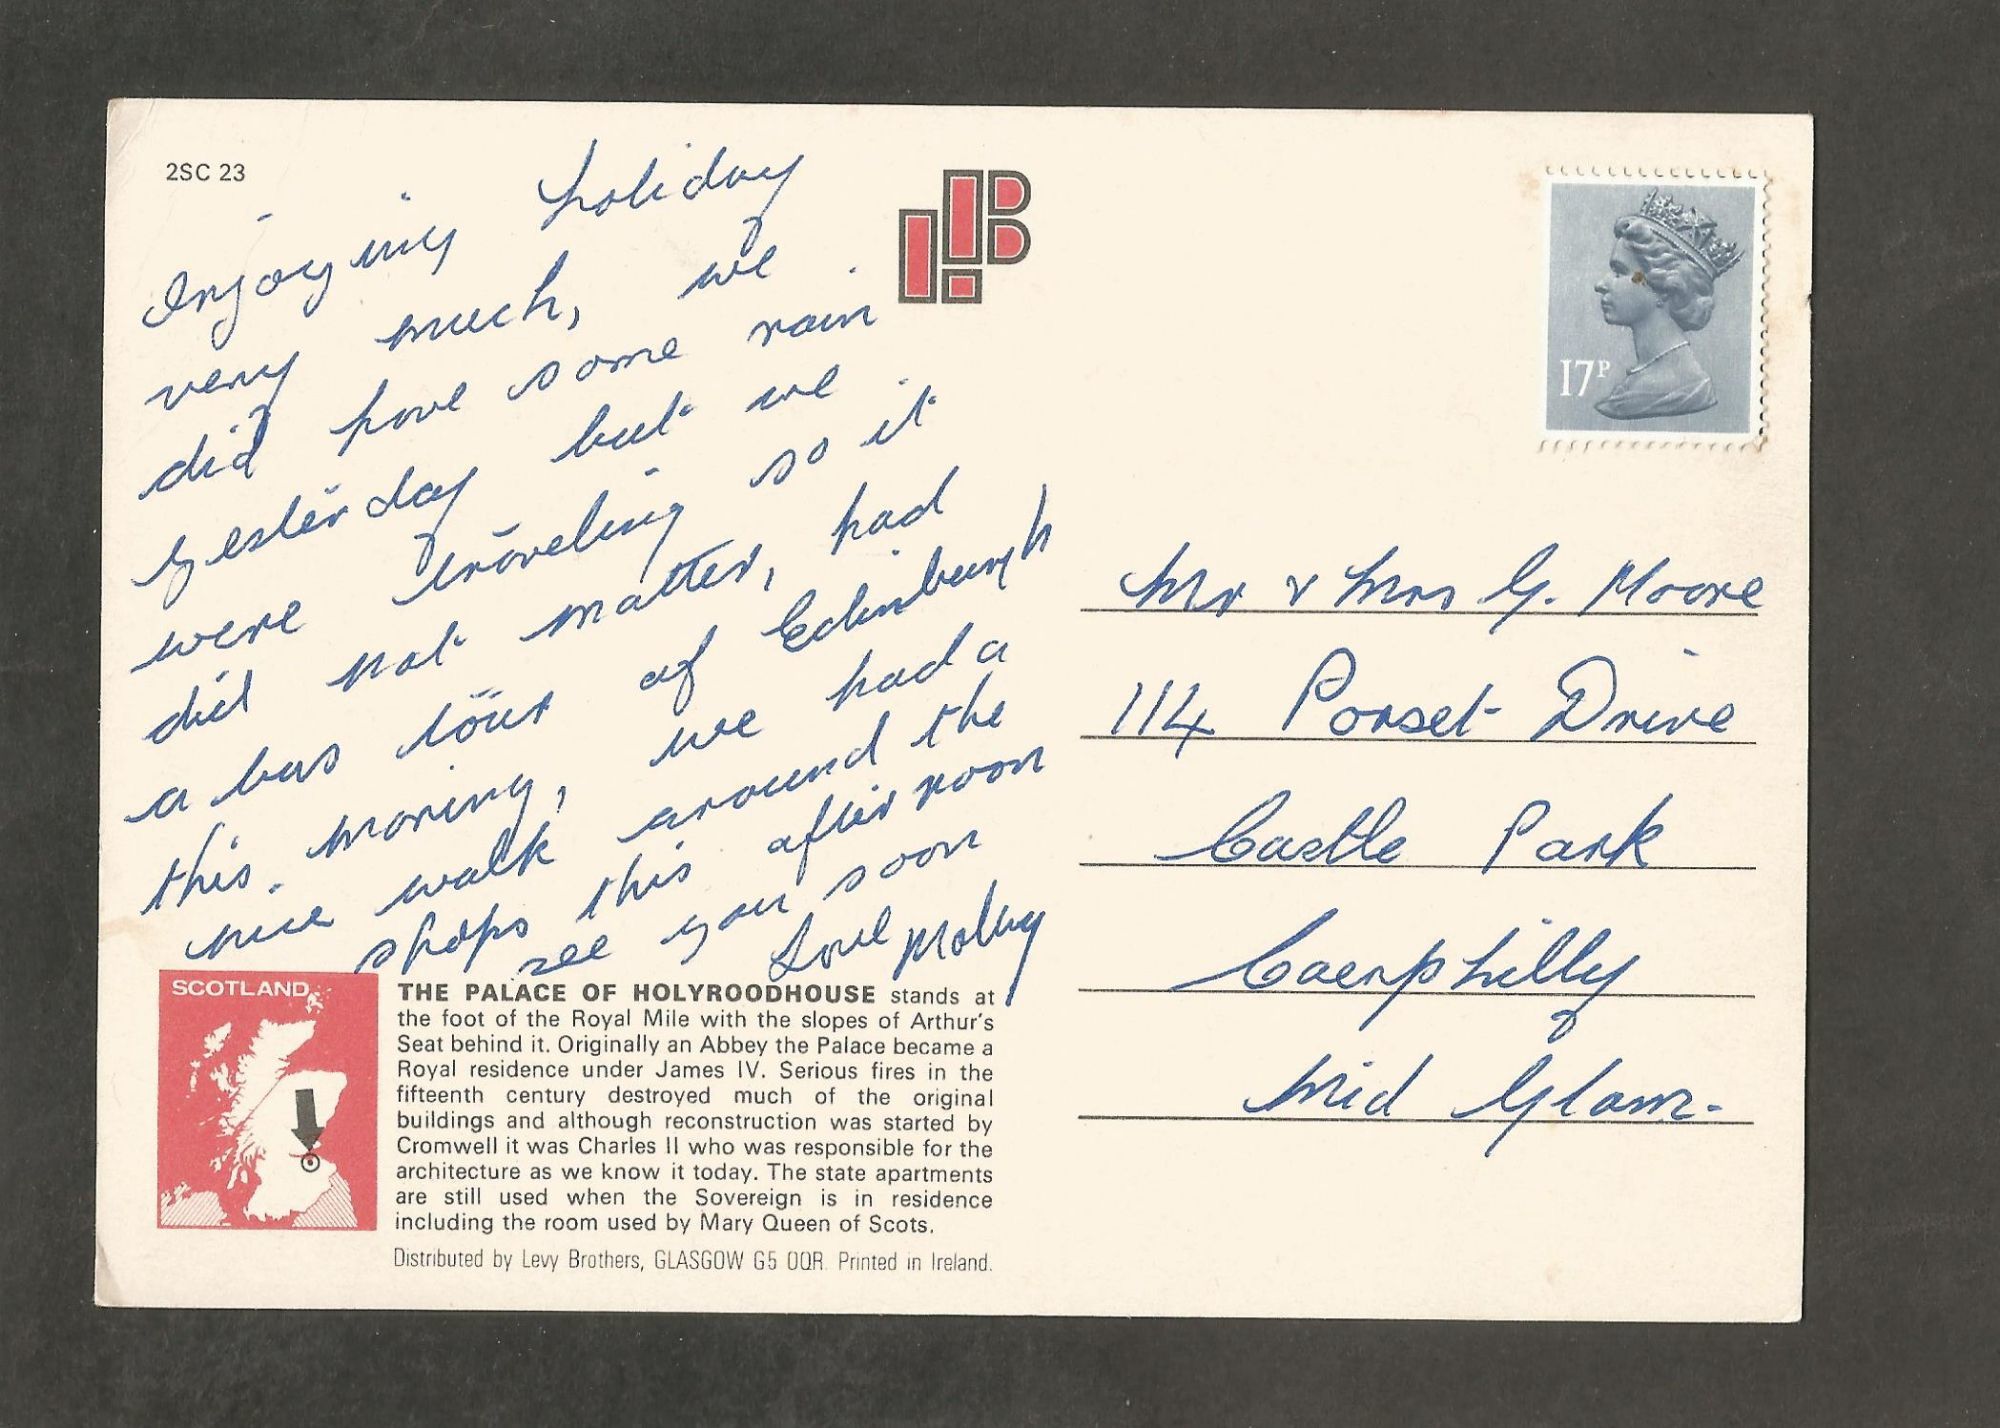 2SC 23
Injoying holiday
very much, we
did have some rain
yesterday but we
were traveling so it
did not matter, had
a bus tour of Edinburgh
this moring, we had a
nice walk around the
shops this afternoon
see you soon
Love Molly
17P
Mr & Mrs G. Moore
114 Porset Drive
Castle Park
Caerphilly
Mid Glam.
SCOTLAND
THE PALACE OF HOLYROODHOUSE stands at
the foot of the Royal Mile with the slopes of Arthur's
Seat behind it. Originally an Abbey the Palace became a
Royal residence under James IV. Serious fires in the
fifteenth century destroyed much of the original
buildings and although reconstruction was started by
Cromwell it was Charles II who was responsible for the
architecture as we know it today. The state apartments
are still used when the Sovereign is in residence
including the room used by Mary Queen of Scots.
Distributed by Levy Brothers, GLASGOW G5 0QR. Printed in Ireland.